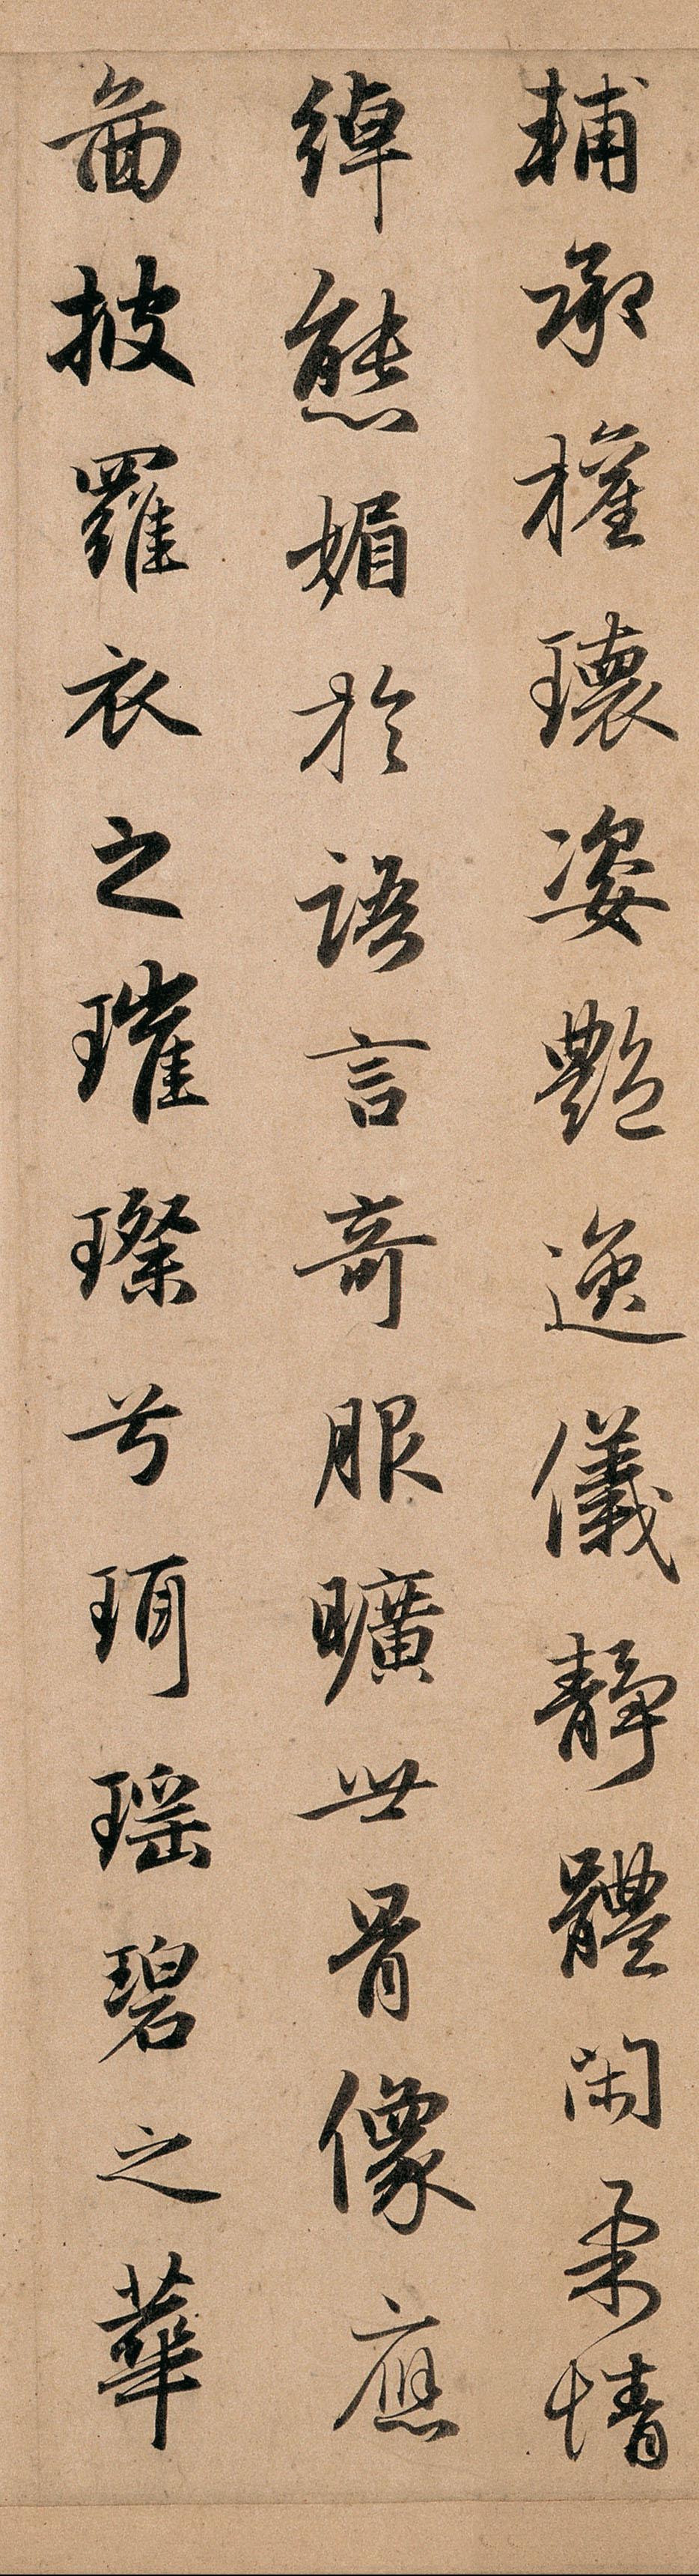 輔承權瓌姿艶逸儀靜體閑柔情
綽態媚於語言奇服曠世骨像應
啚披羅衣之璀璨兮珥瑶碧之華